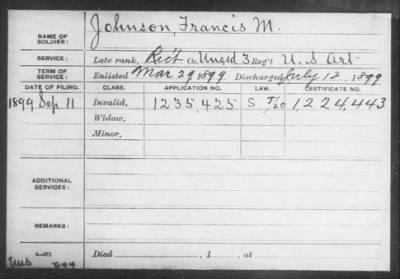 NAME OF SOLDIER: Johnson, Francis M.
SERVICE: Late rank, Rec't Co. Unasd 3 Reg't U. S Art.
TERM OF SERVICE: Enlisted Mar 29 1899 Discharged July 12, 1899
DATE OF FILING. CLASS. APPLICATION NO. LAW. CERTIFICATE NO.
1899 Sep 11 Invalid, 1235,425 S 1,224,443
Widow,
Minor,
ADDITIONAL SERVICES:
REMARKS:
Died , 1 , at